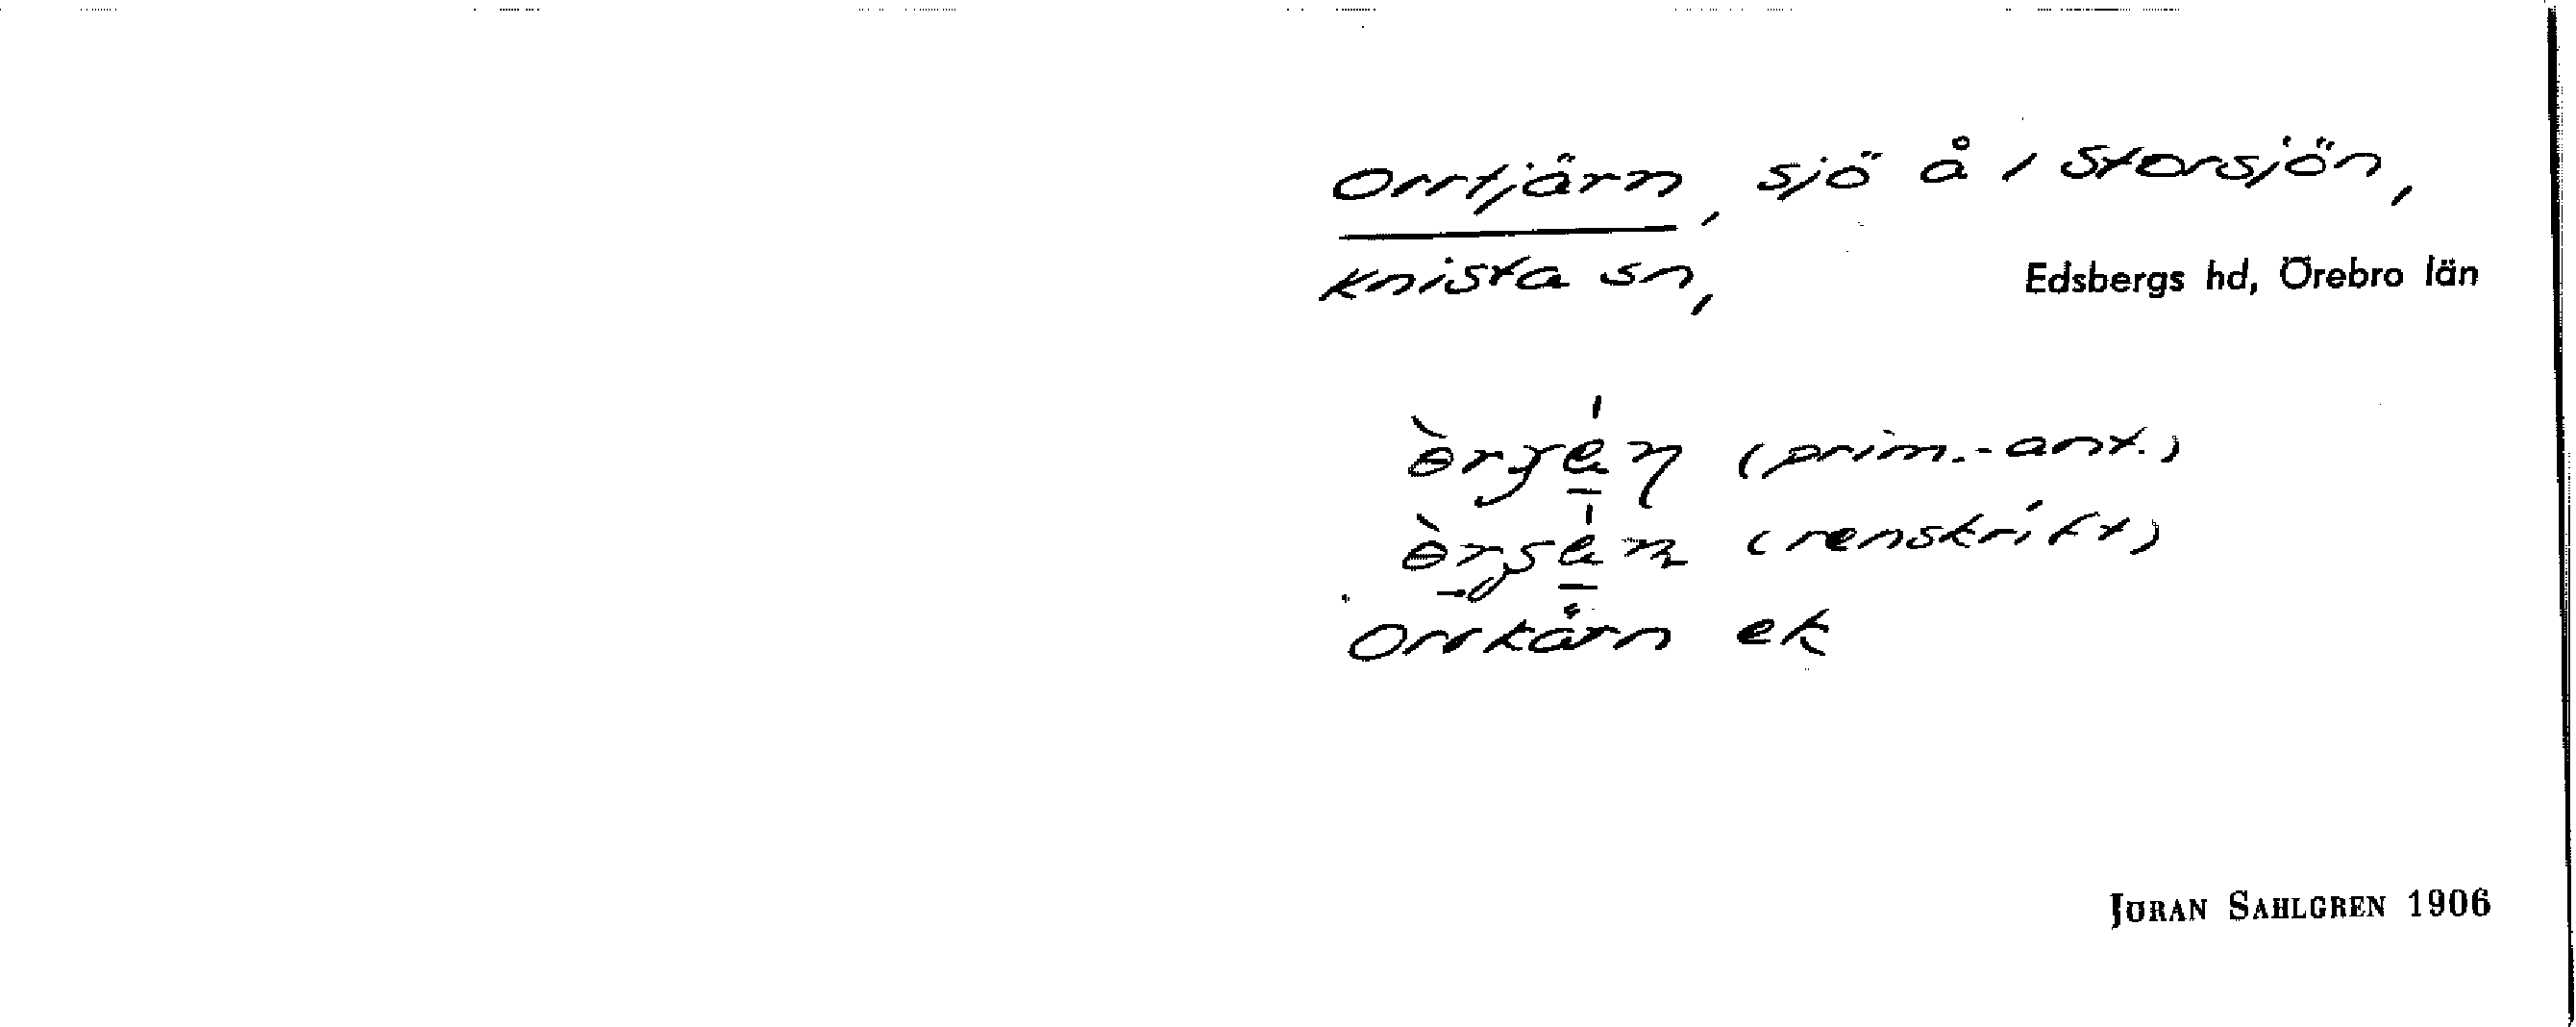 Orrtjärn, sjö å i Storsjön,
Knista sn, Edsbergs hd, Örebro län
(prim.-ant.)
(renskrift)
Orrkärn ek
JÖRAN SAHLGREN 1906